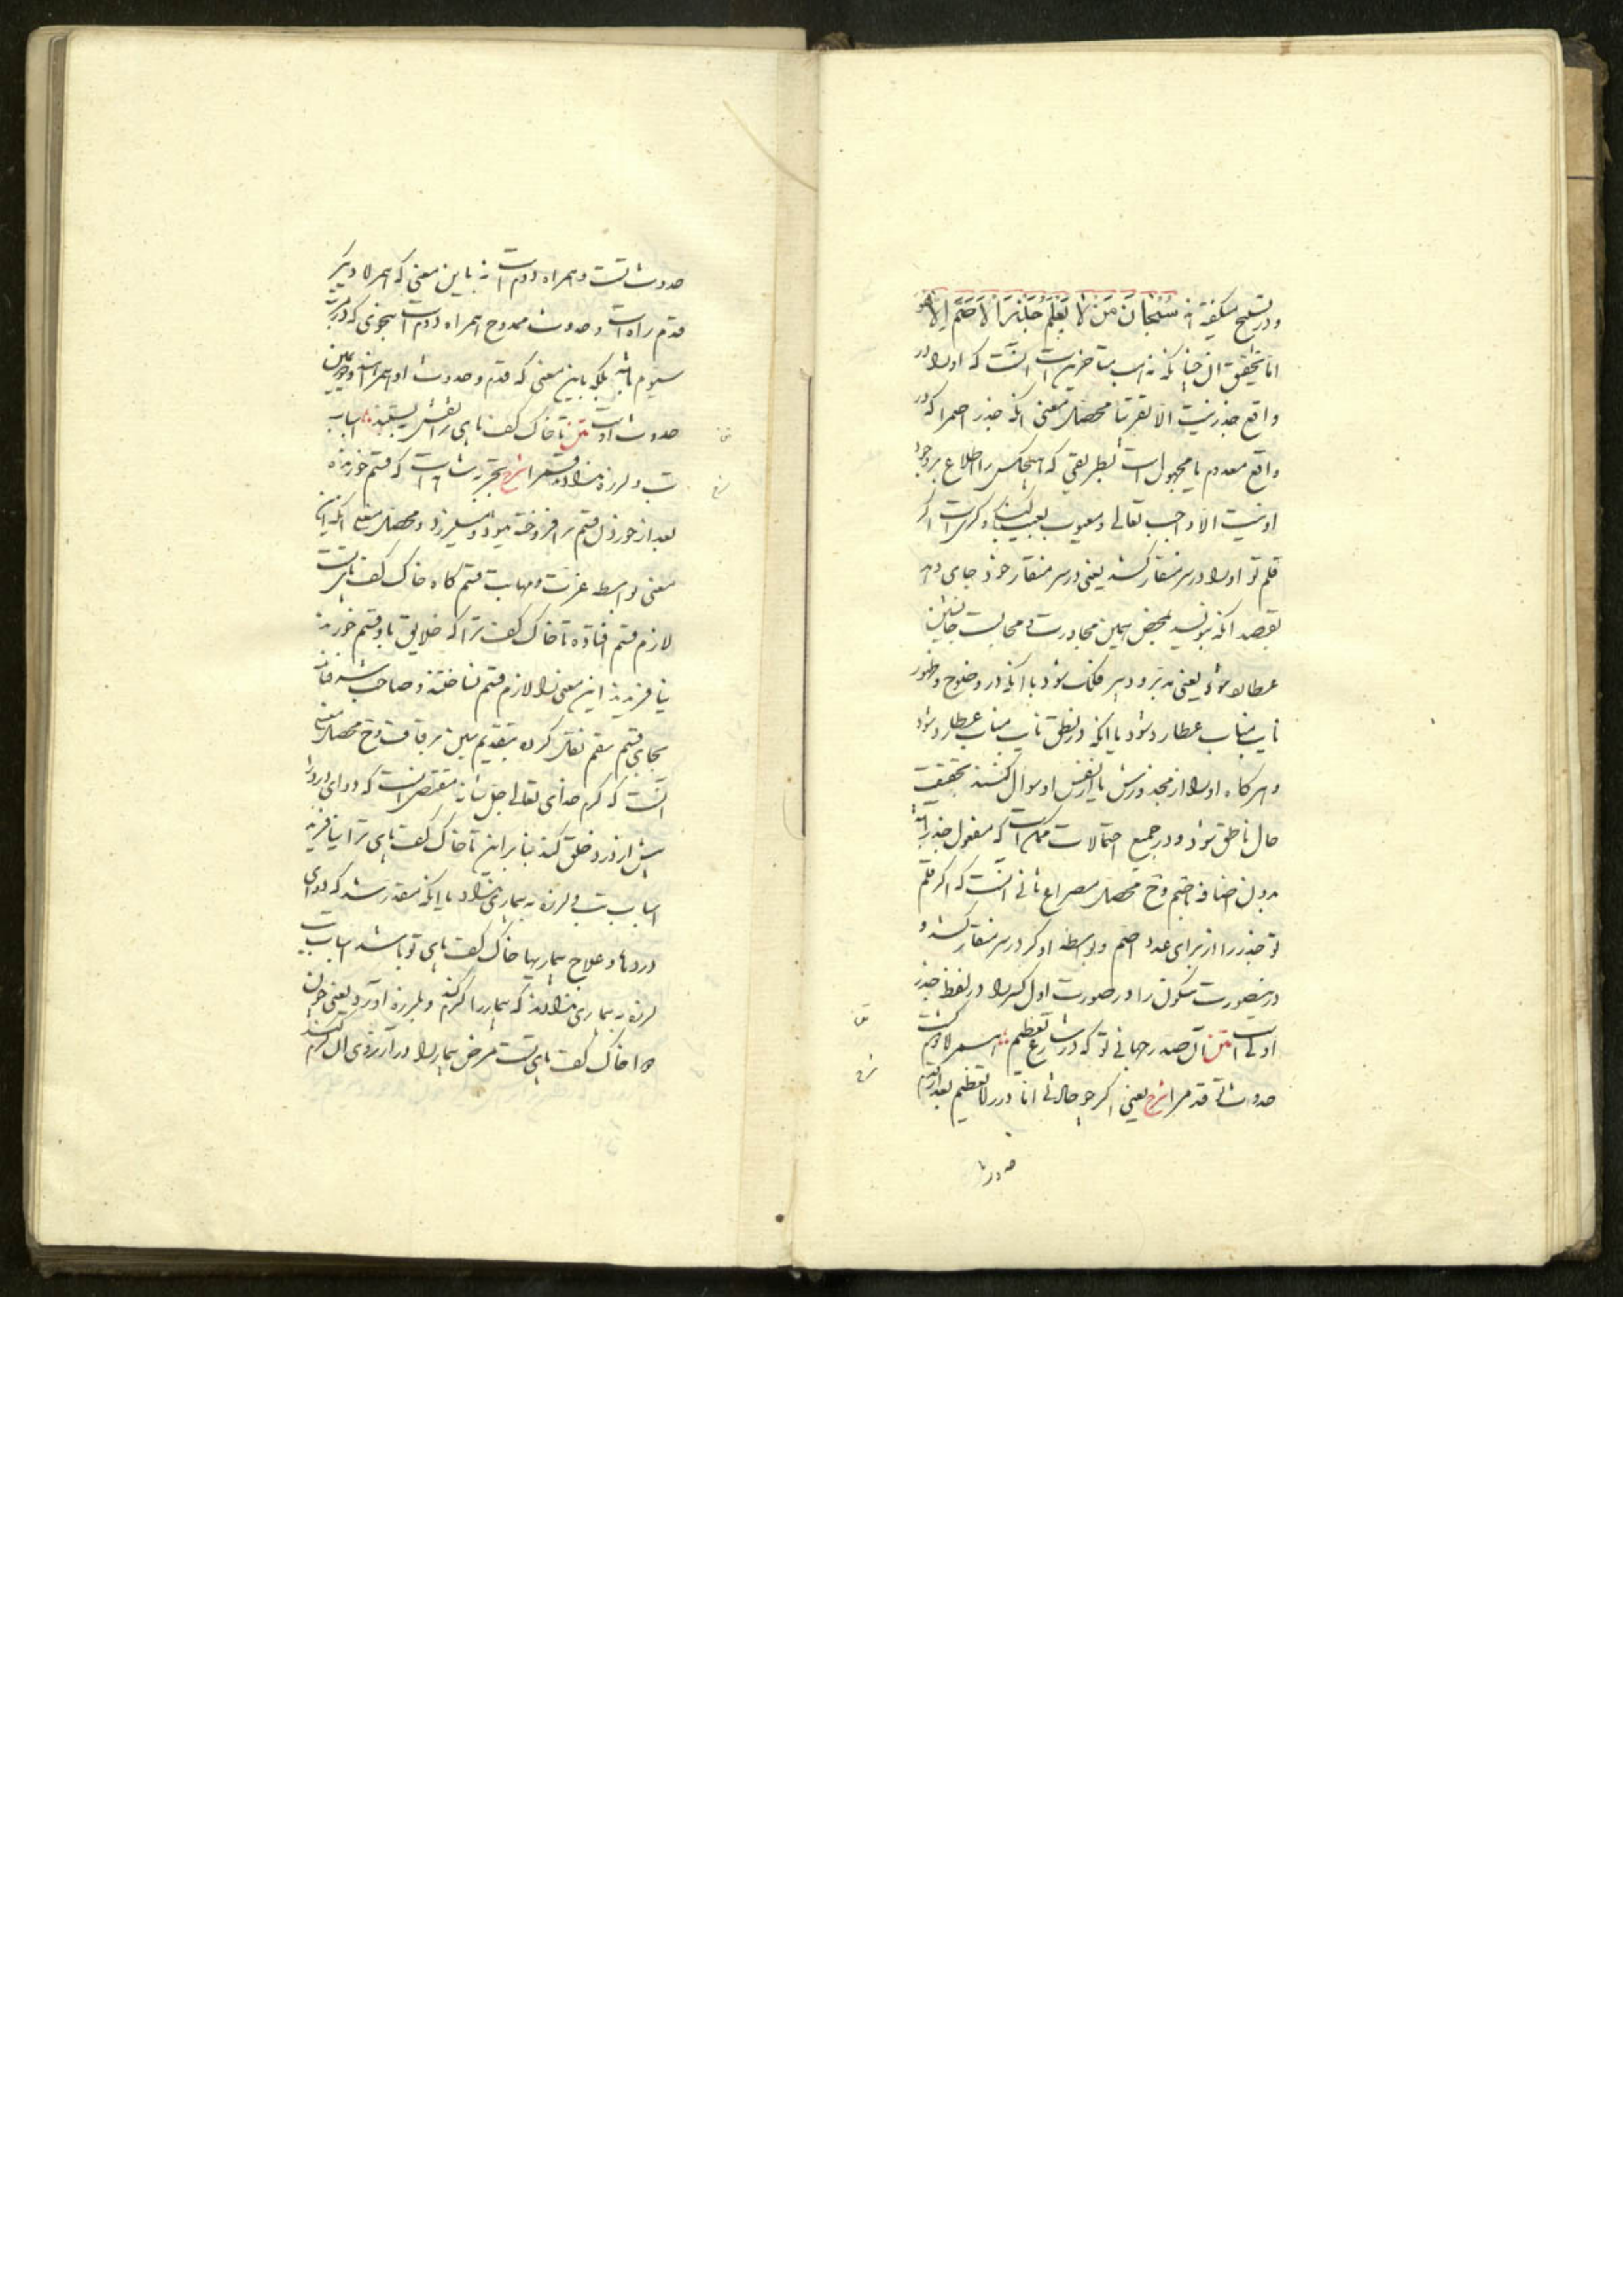 و در تسبیح میگفته اند سُبْحَانَ مَنْ لَا یَعْلَمُ جَذْرَ الْاَصَمِّ اِلَّا هُوَ
اما تحقیق آن چنانکه مذهب متأخرین است آنست که او را در
واقع جذر نیست الا تقریبا محصل معنی آنکه جذر اصم را که در
واقع معدوم یا مجهول است بطریقی که هیچکس را اطلاع بر وجود
او نیست الا واجب تعالی و معیوب بعیب کنکی و کری است اگر
قلم تو او را در سر منقار کشد یعنی در سر منقار خود جای دهد
بقصد آنکه بنویسد بمحض همین مجاورت و مجالست جانشین
عطارد شود یعنی مدبر و دبیر فلک شود یا آنکه در وضوح و ظهور
نایب مناب عطارد شود یا آنکه در نطق نایب مناب عطارد شود
و هر کاه او را از مجذورش یا از نفس او سوال کنند بحقیقت
حال ناطق شود و در جمیع احتمالات ممکن است که مفعول جذر باشد
بدون اضافه اصم وح محصل مصراع ثانی آنست که اگر قلم
تو جذر را از برای عدد اصم و بواسطه او کر در سر منقار کشد و
درینصورت سکون را و در صورت اول کسر را در لفظ جذر
اولی است متن آن صدر جهانی تو که در شارع تعظیم همراه دوم کشت
حدوث تو قدم را شرح یعنی اگر چه حالتی اما در راه تعظیم بعد از قدم
حدوث
حدوث تست و همراه دوم است نه باین معنی که همراه دیگر
قدم راه است و حدوث ممدوح همراه دوم است بنحوی که در مرتبه
سیوم باشد بلکه باین معنی که قدم و حدوث او همراه اند و
حدوث او است متن تا خاک کف پای ترا نقش نبستند اسباب
تب و لرزه ندادند قسم را شرح بتجربه ثابت است که قسم خورنده
بعد از خوردن قسم بر افروخته میشود و میلرزد و محصل معنی آنکه این
معنی بواسطه عزت و مهابت قسم کاه خاک کف پای تست
لازم قسم افتاده تا خاک کف ترا که خلایق باو قسم خورند
نیافریدند این معنی را لازم قسم نساختند و صاحب شرفنامه
بجای قسم سقم نقل کرده بتقدیم سین بر قاف وح محصل معنی
آنست که کرم خدای تعالی جل شانه مقتضی آنست که دوای درد را
پیش از درد خلق کند بنا برین تا خاک کف پای ترا نیافرید
اسباب تب و لرزه به بیماری نداد یا آنکه مقدر شد که دوای
دردها و علاج بیماریها خاک کف پای تو باشد اسباب تب
لرزه به بیماری ندادند که بیمار را گرم کند و بلرزه آورد یعنی چون
دوا خاک کف پای تست مرض بیمار را در آرزوی آن گرم کند